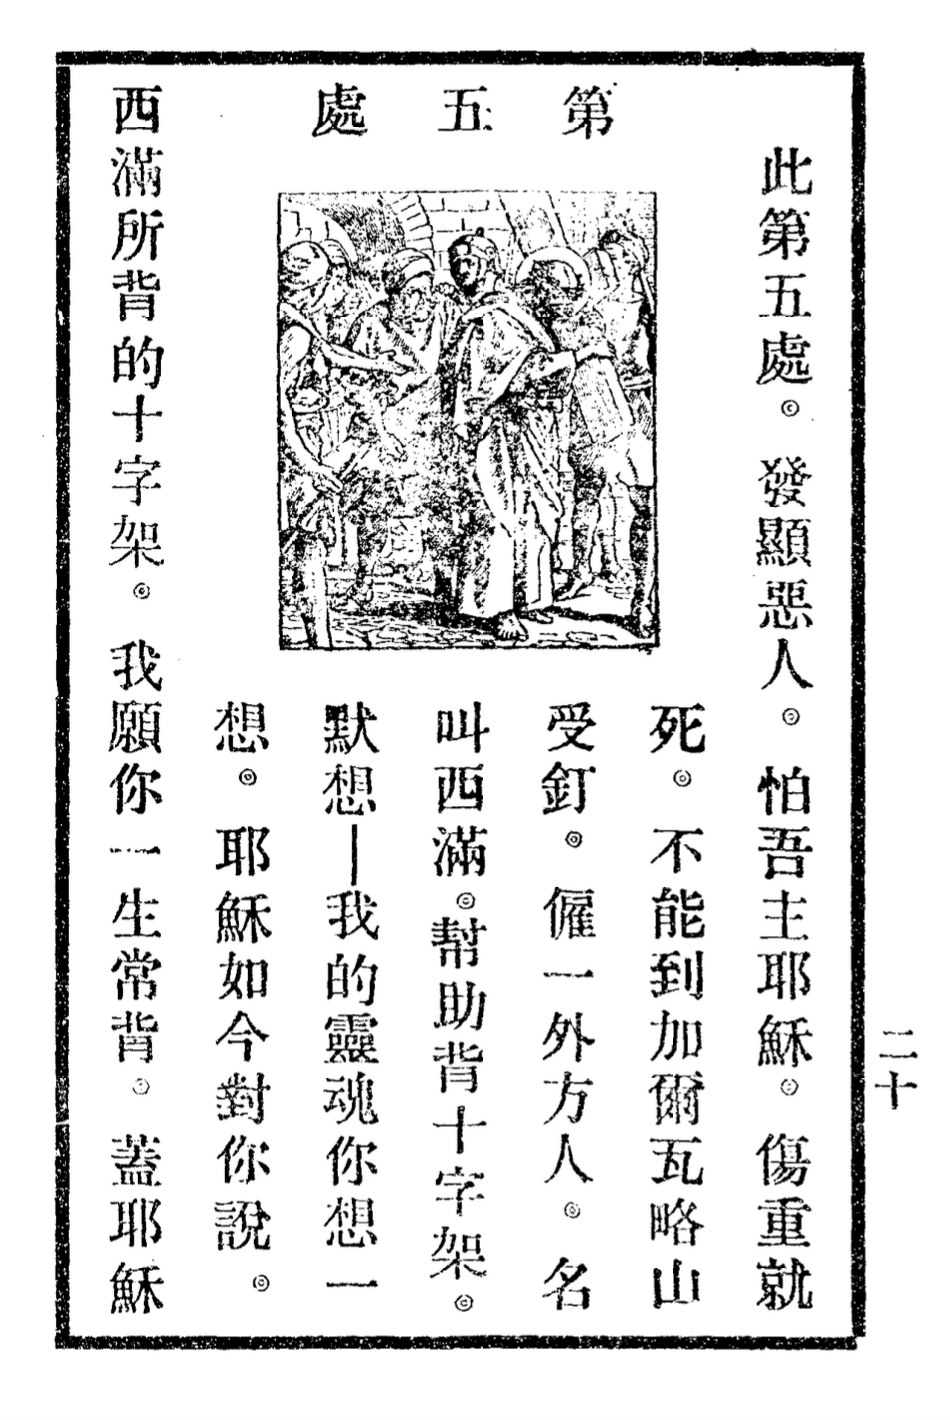 第五處
此第五處。發顯惡人。怕吾主耶穌。傷重就
死。不能到加爾瓦略山
受釘。僱一外方人。名
叫西滿。幫助背十字架。
默想—我的靈魂你想一
想。耶穌如今對你說。
西滿所背的十字架。我願你一生常背。蓋耶穌
二十